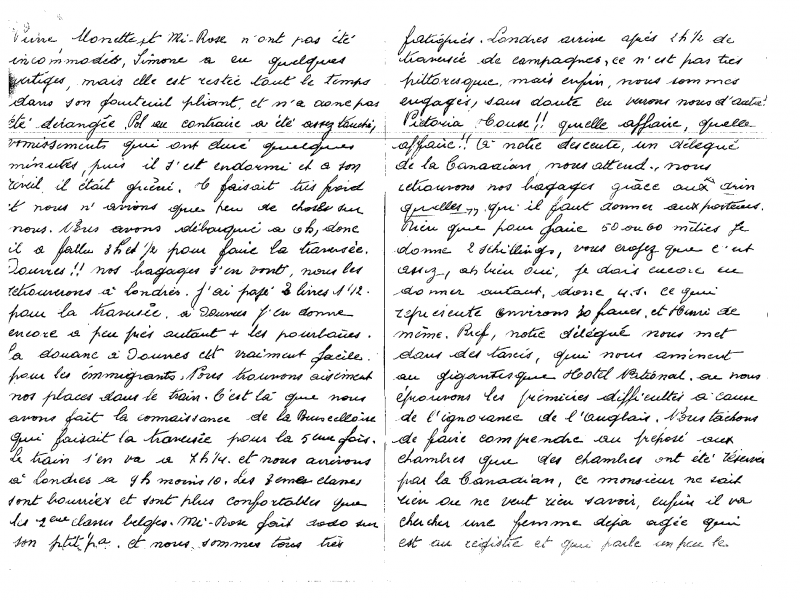 Pierre Monette, et Mi-Rose n'ont pas été
incommodés, Simone a eu quelques
vertiges, mais elle est restée tout le temps
dans son fauteuil pliant, et n'a donc pas
été dérangée. Pol au contraire a été assez
vomissements qui ont duré quelques
minutes, puis il s'est endormi et a son
réveil il était guéri. Il faisait très froid
et nous n'avions que peu de choses sur
nous. Nous avons débarqué a 6h, donc
il a fallu 3h et 1/2 pour faire la traversée.
Douvres!! nos bagages s'en vont, nous les
retrouverons à Londres. J'ai payé 2 livres 1/12.
pour la traversée, a Douvres j'en donne
encore a peu près autant + les pourboires.
la douane a Douvres est vraiment facile
pour les émmigrants. Nous trouvons aisément
nos places dans le train. C'est là que nous
avons fait la connaissance de la Bruxelloise
qui faisait la traversée pour la 5eme fois.
Le train s'en va a 7h1/4. et nous arrivons
à Londres a 9h moins 10. Les 3emes classes
sont bourrées et sont plus confortables que
les 2eme classes belges. Mi-Rose fait dodo sur
son ptit pa. et nous sommes tous très
fatigués. Londres arrive après 1h1/2 de
traversée de campagnes, ce n'est pas très
pittoresque, mais enfin, nous sommes
engagés, sans doute en verons nous d'autre!
Victoria House!! quelle affaire, quelle
affaire!! A notre descente, un délégué
de la Canadian, nous attend., nous
retrouvons nos bagages grâce aux "drin
guelles" qu'il faut donner aux porteurs.
Rien que pour faire 50 ou 60 mètres Je
donne 2 schillings, vous croyez que c'est
assez, ah bien oui, Je dois encore en
donner autant, donc 4.s. ce qui
représente environs 20 francs, et Henri de
même. Bref, notre délégué nous met
dans des taxis, qui nous amènent
au gigantesque Hotel National. ou nous
éprouvons les premières difficultés à cause
de l'ignorance de l'anglais. Nous tâchons
de faire comprendre au préposé aux
chambres que des chambres ont été réservées
par la Canadian, ce monsieur ne sait
rien ou ne veut rien savoir, enfin il va
chercher une femme deja agée qui
est au registre et qui parle un peu le